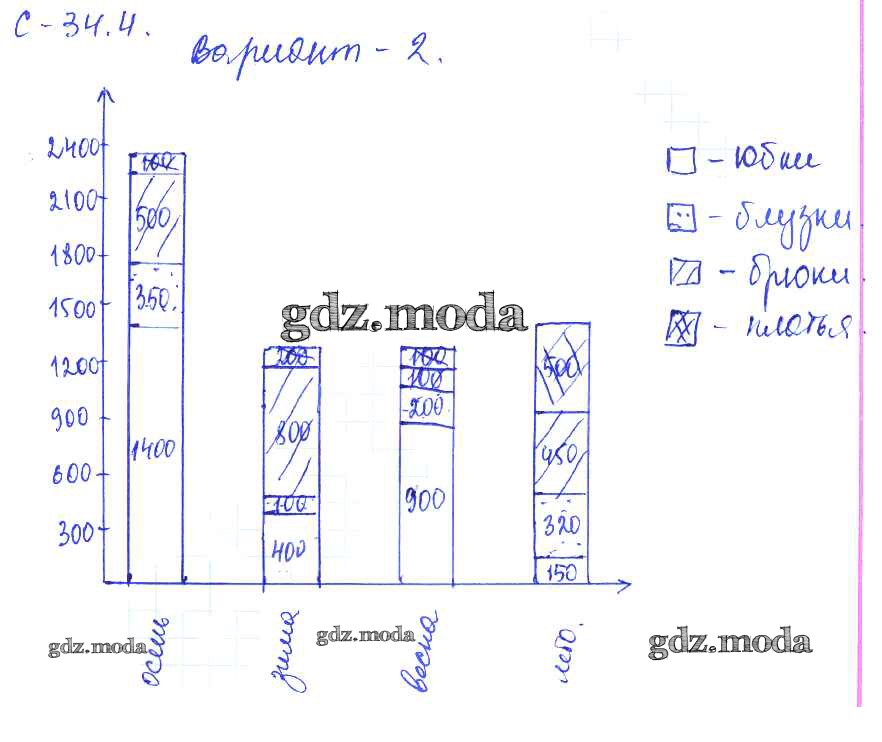 С-34.4.
Вариант - 2.
2400
2100
1800
1500
1200
900
600
300
100
500
350
1400
200
800
100
400
100
100
200
900
500
450
320
150
- юбки
- блузки.
- брюки.
- платья.
gdz.moda
осень
зима
весна
лето.
gdz.moda
gdz.moda
gdz.moda